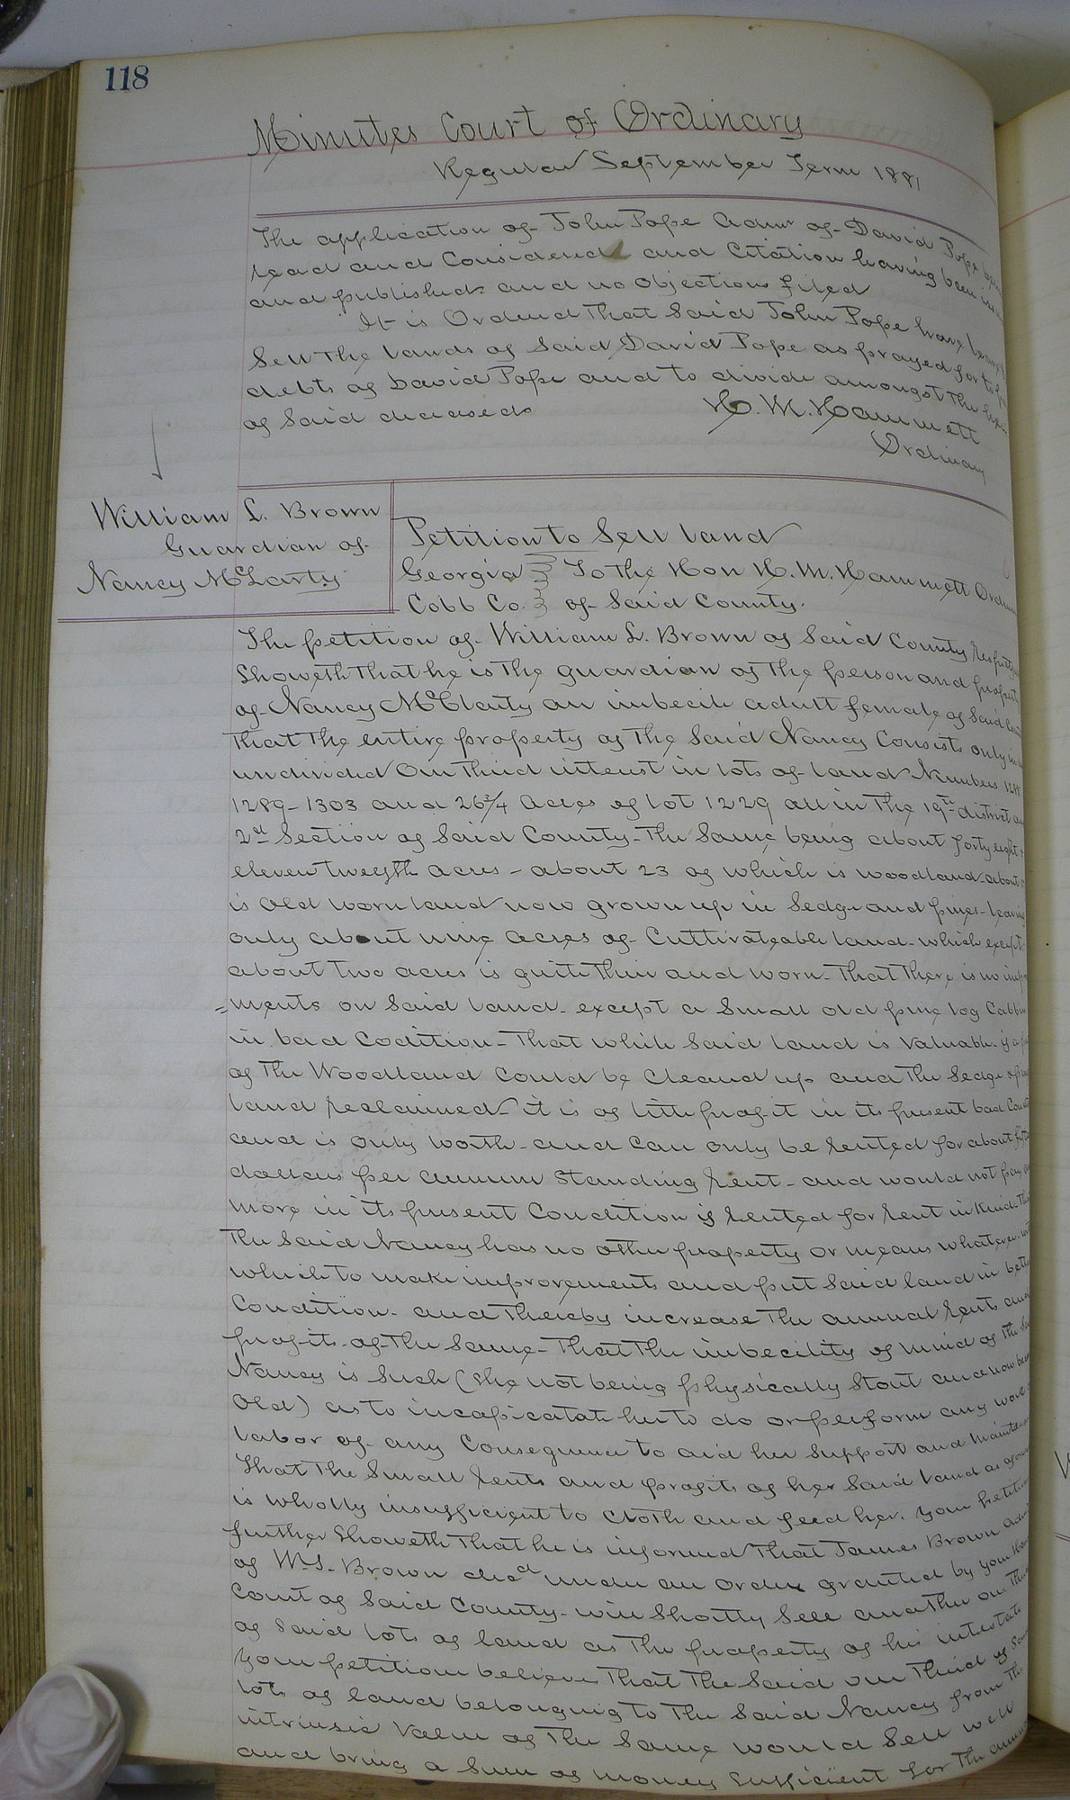 118
Minutes Court of Ordinary
Regular September Term 1881
The application of John Pope Admr of David Pope being
read and Considered and Citation having been
and published and no objections filed
It is Ordered That Said John Pope have
Sell The lands of Said David Pope as prayed for to
debts of David Pope and to divide amongst The
of Said deceased
H. M. Hammett
Ordinary
William L. Brown
Guardian of
Nancy McLarty
Petition to Sell land
Georgia To The Hon H. M. Hammett
Cobb Co. of Said County.
The petition of William L. Brown of Said County
Showeth That he is The guardian of The person and
of Nancy McClarty an imbecile adult female of Said
That The entire property of The Said Nancy Consists only
undivided One Third interest in lots of land Numbers
1289 - 1303 and 26 3/4 Acres of lot 1229 all in The 19th district
2d Section of Said County - The Same being about forty eight
eleven twelfth acres - about 23 of which is woodland - about
is Old worn land now grown up in Sedge and pines - leaving
only about nine acres of Cultivateable land - which except
about two acres is quite Thin and worn - That There is no
= ments on Said land - except a Small old pine log
in bad Codition - That while Said land is Valuable - if
of The Woodland Could be Cleaned up and The Sedge
land reclaimed - it is of little profit in its present bad
and is only worth - and Can only be rented for about
dollars per annum Standing Rent - and would not pay
more in its present Condition if rented for rent in Kind -
The Said Nancy has no other property or means whatever
which to make improvements and put Said land in
Condition - and Thereby increase The annual rents and
profits of The Same - That The imbecility of mind of The
Nancy is Such (She not being physically Stout and now
Old) as to incapicatate her to do or perform any work
labor of any Consequence to aid her Support and
That The Small rents and profits of her Said land as
is wholly insufficient to Cloth and feed her. Your
further Showeth That he is informed That James Brown
of W. S. Brown decd under an Order granted by your
Court of Said County - will Shortly Sell another one
of Said lots of land as The property of his intestate
Your petition believes That The Said one Third of
lots of land belonging to The Said Nancy from The
intrinsic Value of The Same would Sell well
and bring a Sum of money Sufficient for The